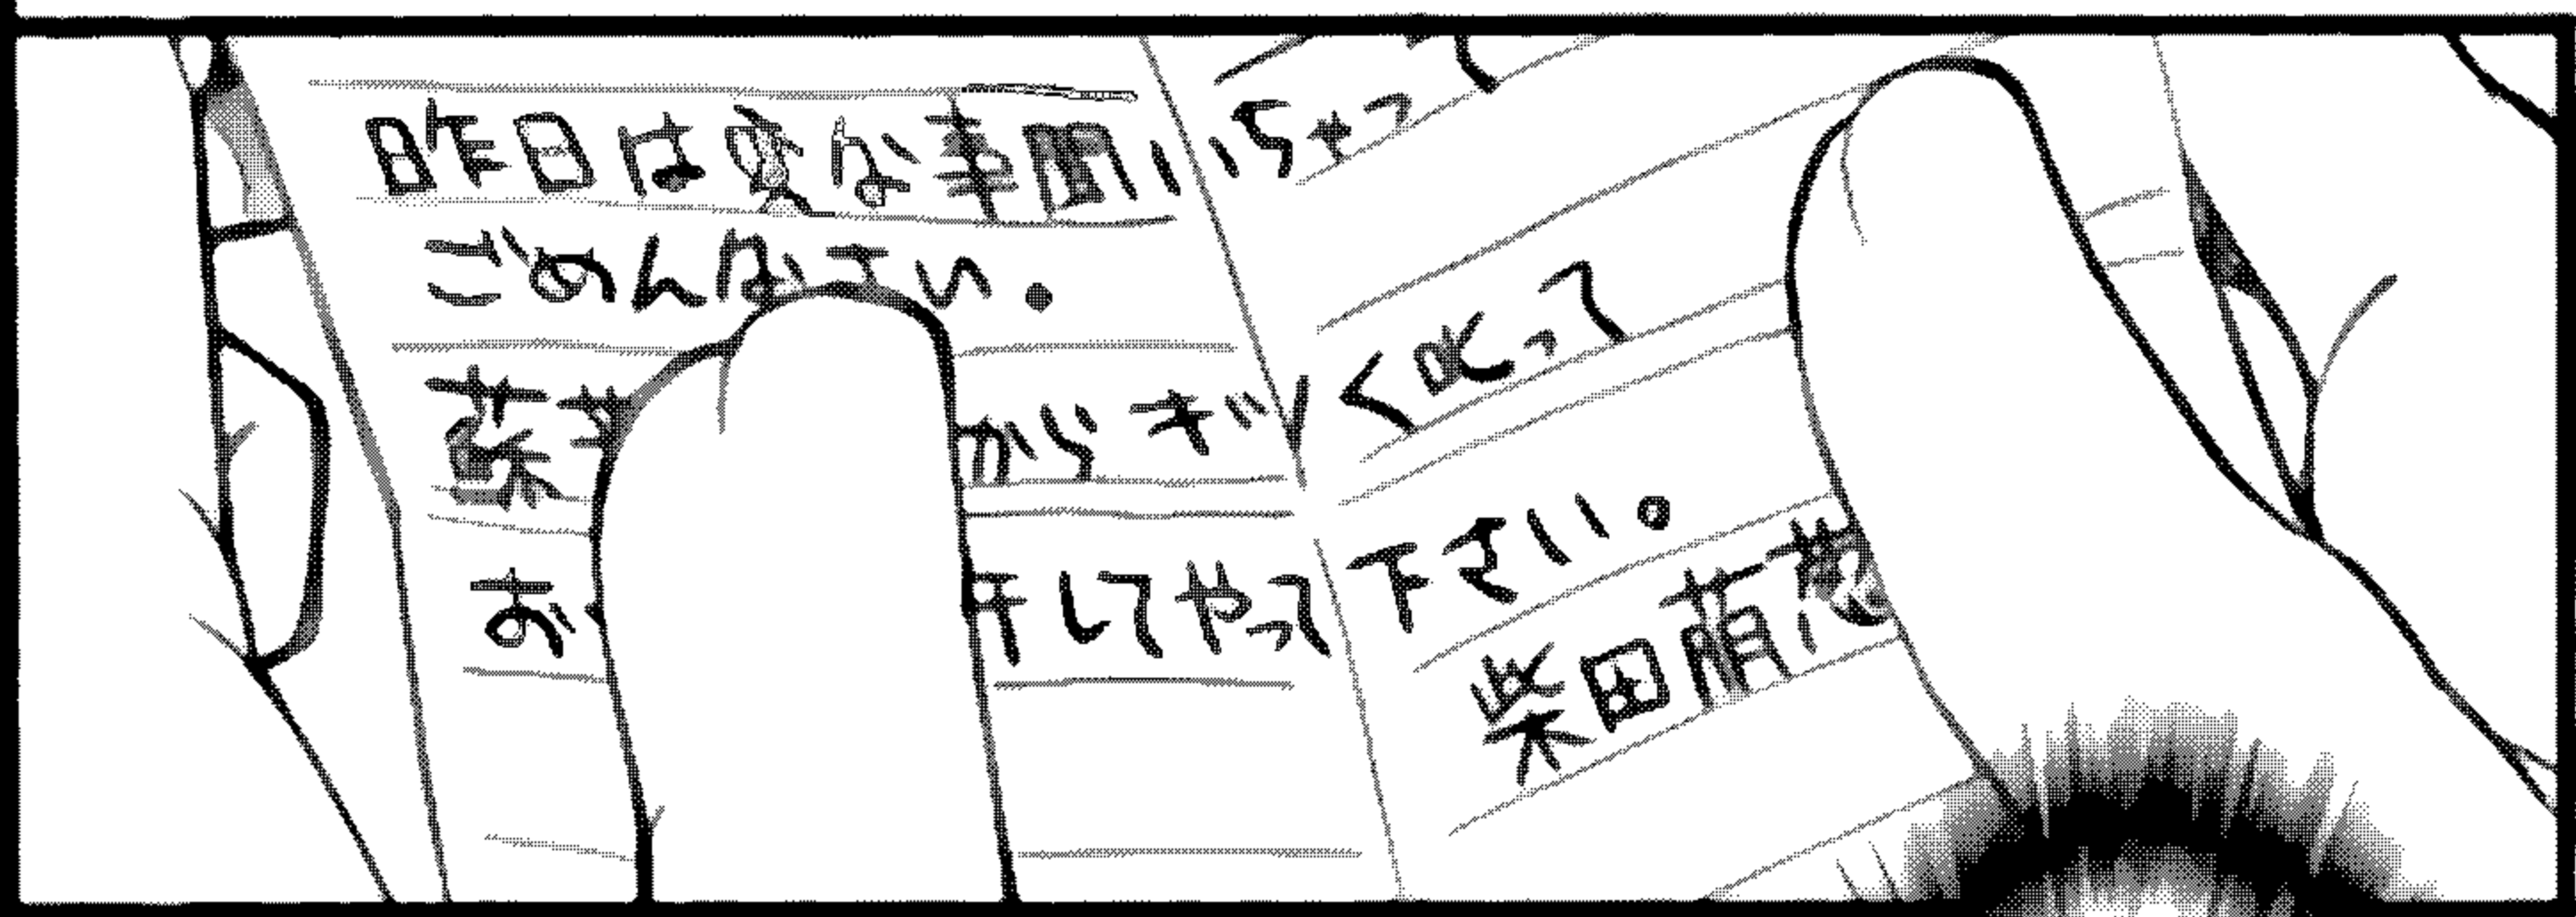 昨日は変な事聞いちゃって
ごめんなさい。
菜 からキツく叱って
お 干してやって下さい。
柴田萌